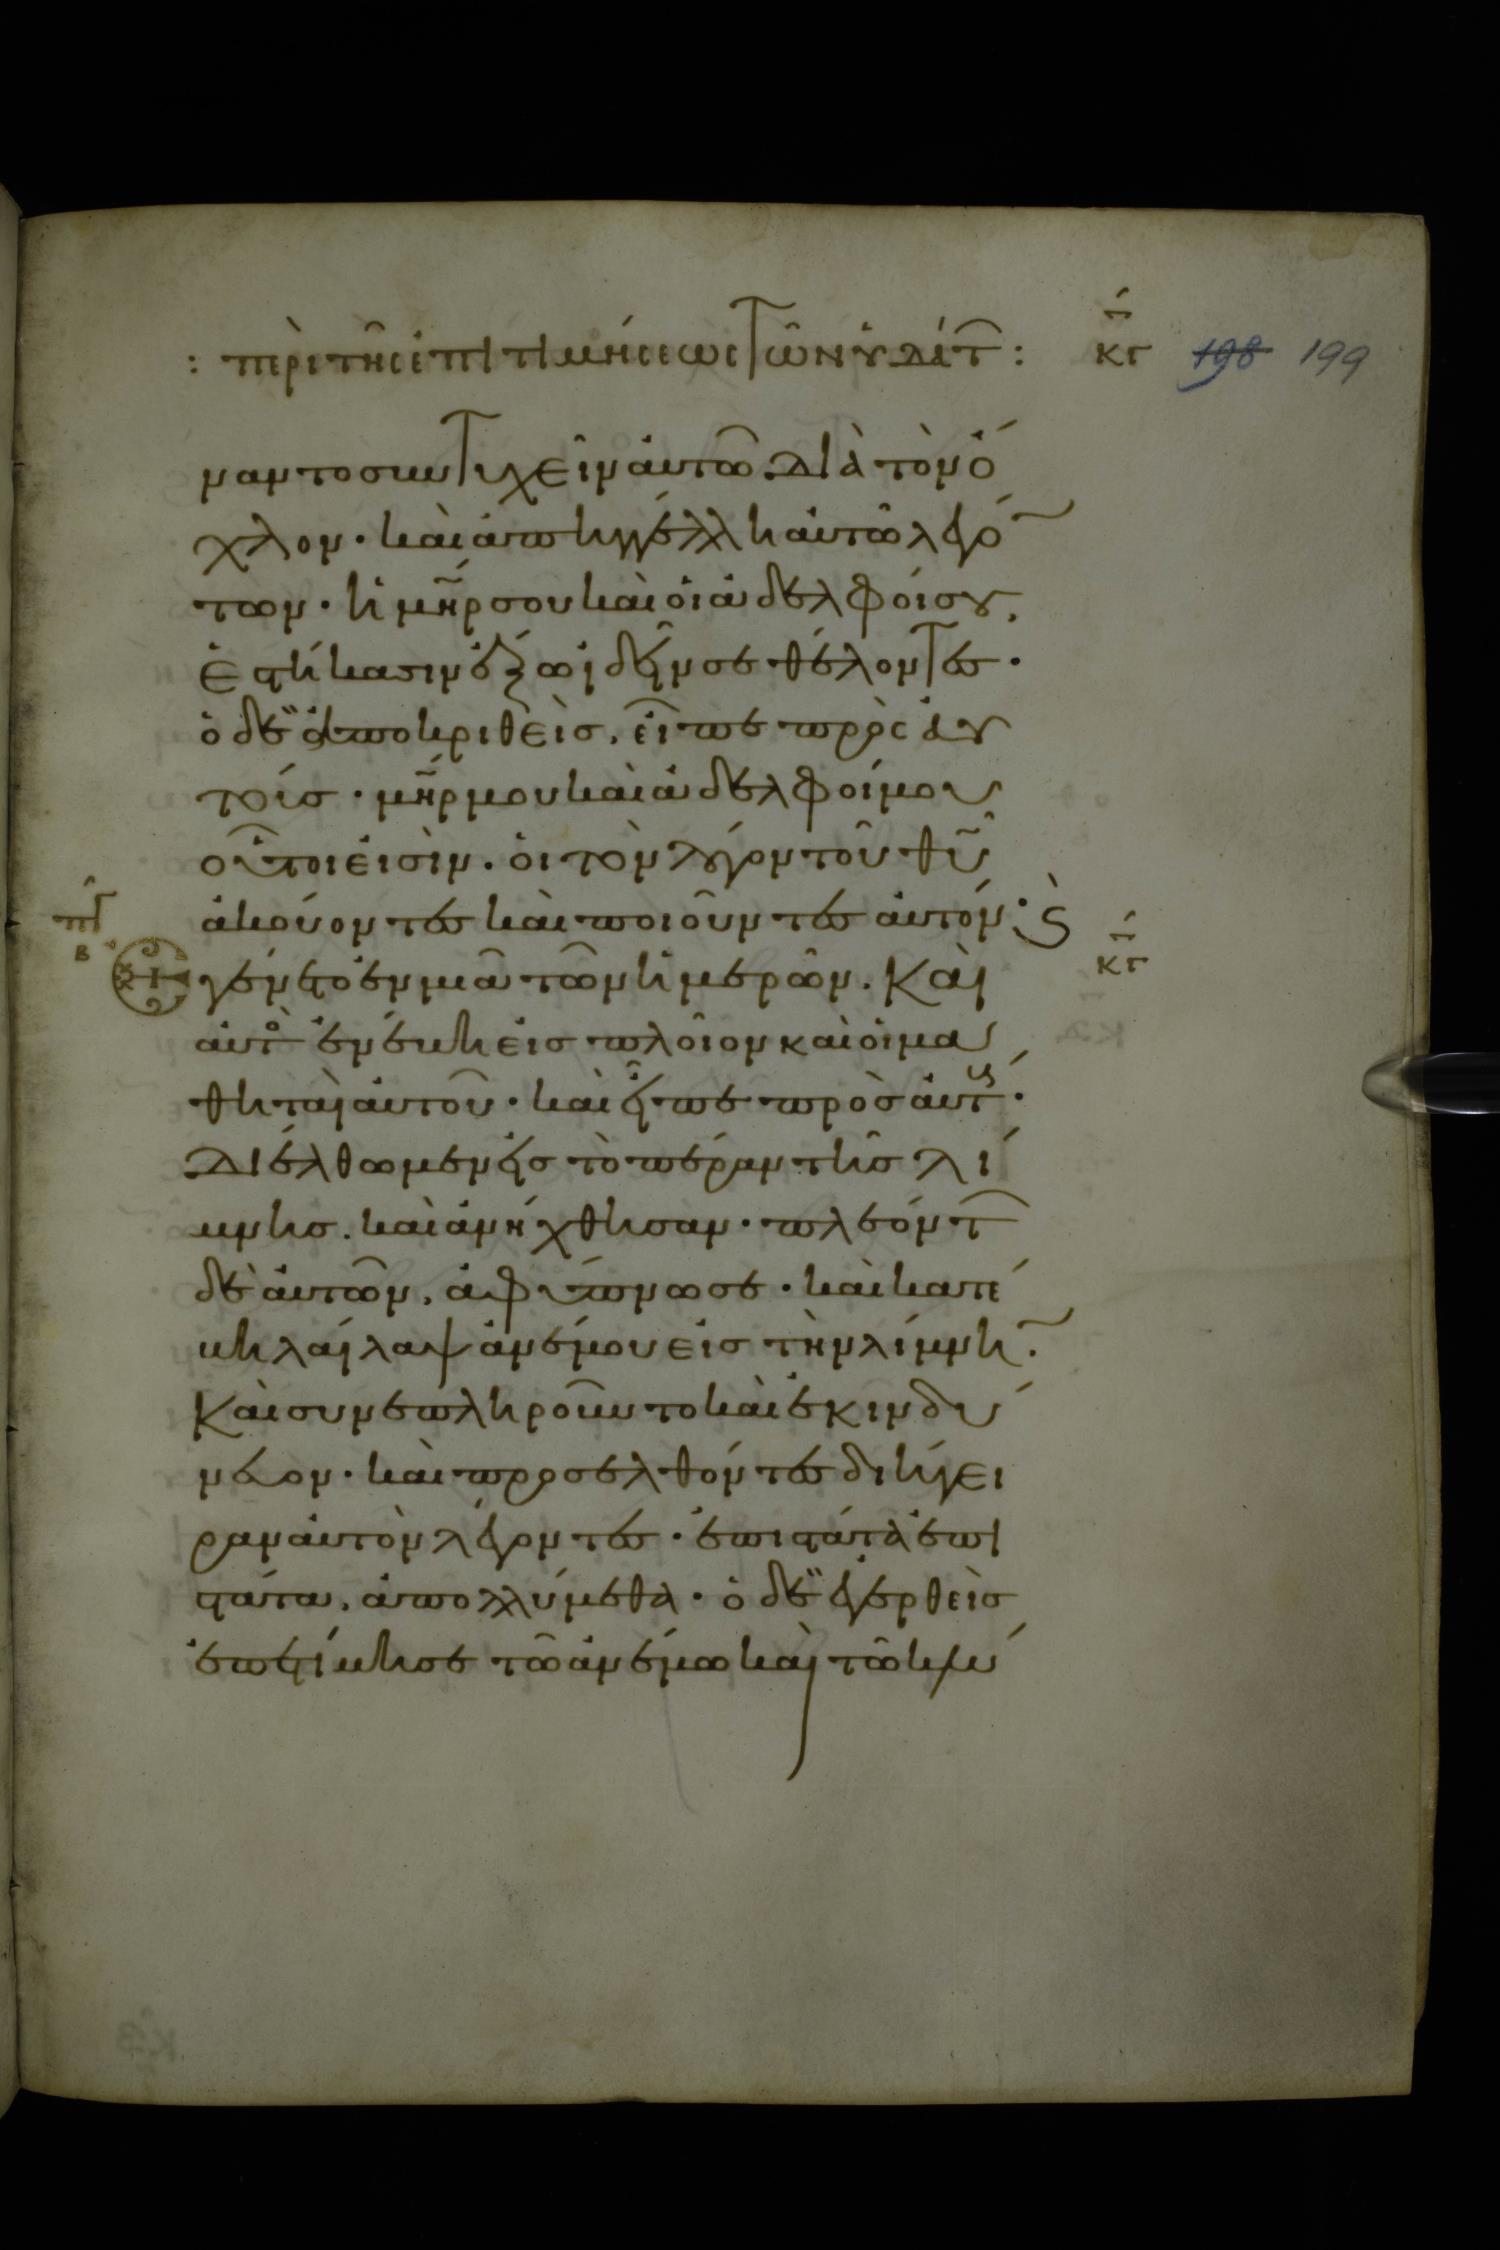 : περὶ τῆς ἐπιτιμήσεως τῶν ὑδάτ : κγ 198 199
ναντο συντυχεῖν αὐτῶ. διὰ τὸν ὄ
χλον · καὶ ἀπηγγέλλη αὐτῶ λεγό
των · ἡ μῆρ σου καὶ οἱ ἀδελφοί σου,
ἑστήκασιν ἔξω ἰδεῖν σε θέλοντες ·
ὁ δὲ ἀποκριθεὶς, εἶπε πρὸς αὐ
τούς · μῆρ μου καὶ ἀδελφοί μου
οὗτοι εἰσὶν · οἱ τὸν λόγον τοῦ θυ
ἀκούοντες καὶ ποιοῦντες αὐτόν ·
πγ
β
κγ
ἐγένετο ἐν μιᾶ τῶν ἡμερῶν. Καὶ
αὐτὸ ἐνέβη εἰς πλοῖον καὶ οἱ μα
θηταὶ αὐτοῦ · καὶ εἶπε πρὸς αὐτ ·
διέλθωμεν εἰς τὸ πέραν τῆς λί
μνης. καὶ ἀνήχθησαν · πλεόντ
δὲ αὐτῶν, ἀφύπνωσε · καὶ κατέ
βη λαίλαψ ἀνέμου εἰς τὴν λίμνη ·
Καὶ συνεπληροῦντο καὶ ἐκινδύ
νευον · καὶ προσελθόντες διήγει
ραν αὐτὸν λέγοντες · ἐπιστάτα ἐπι
στάτα, ἀπολλύμεθα · ὁ δὲ ἐγερθεὶς
ἐπετίμησε τῶ ἀνέμω καὶ τῶ κλύ